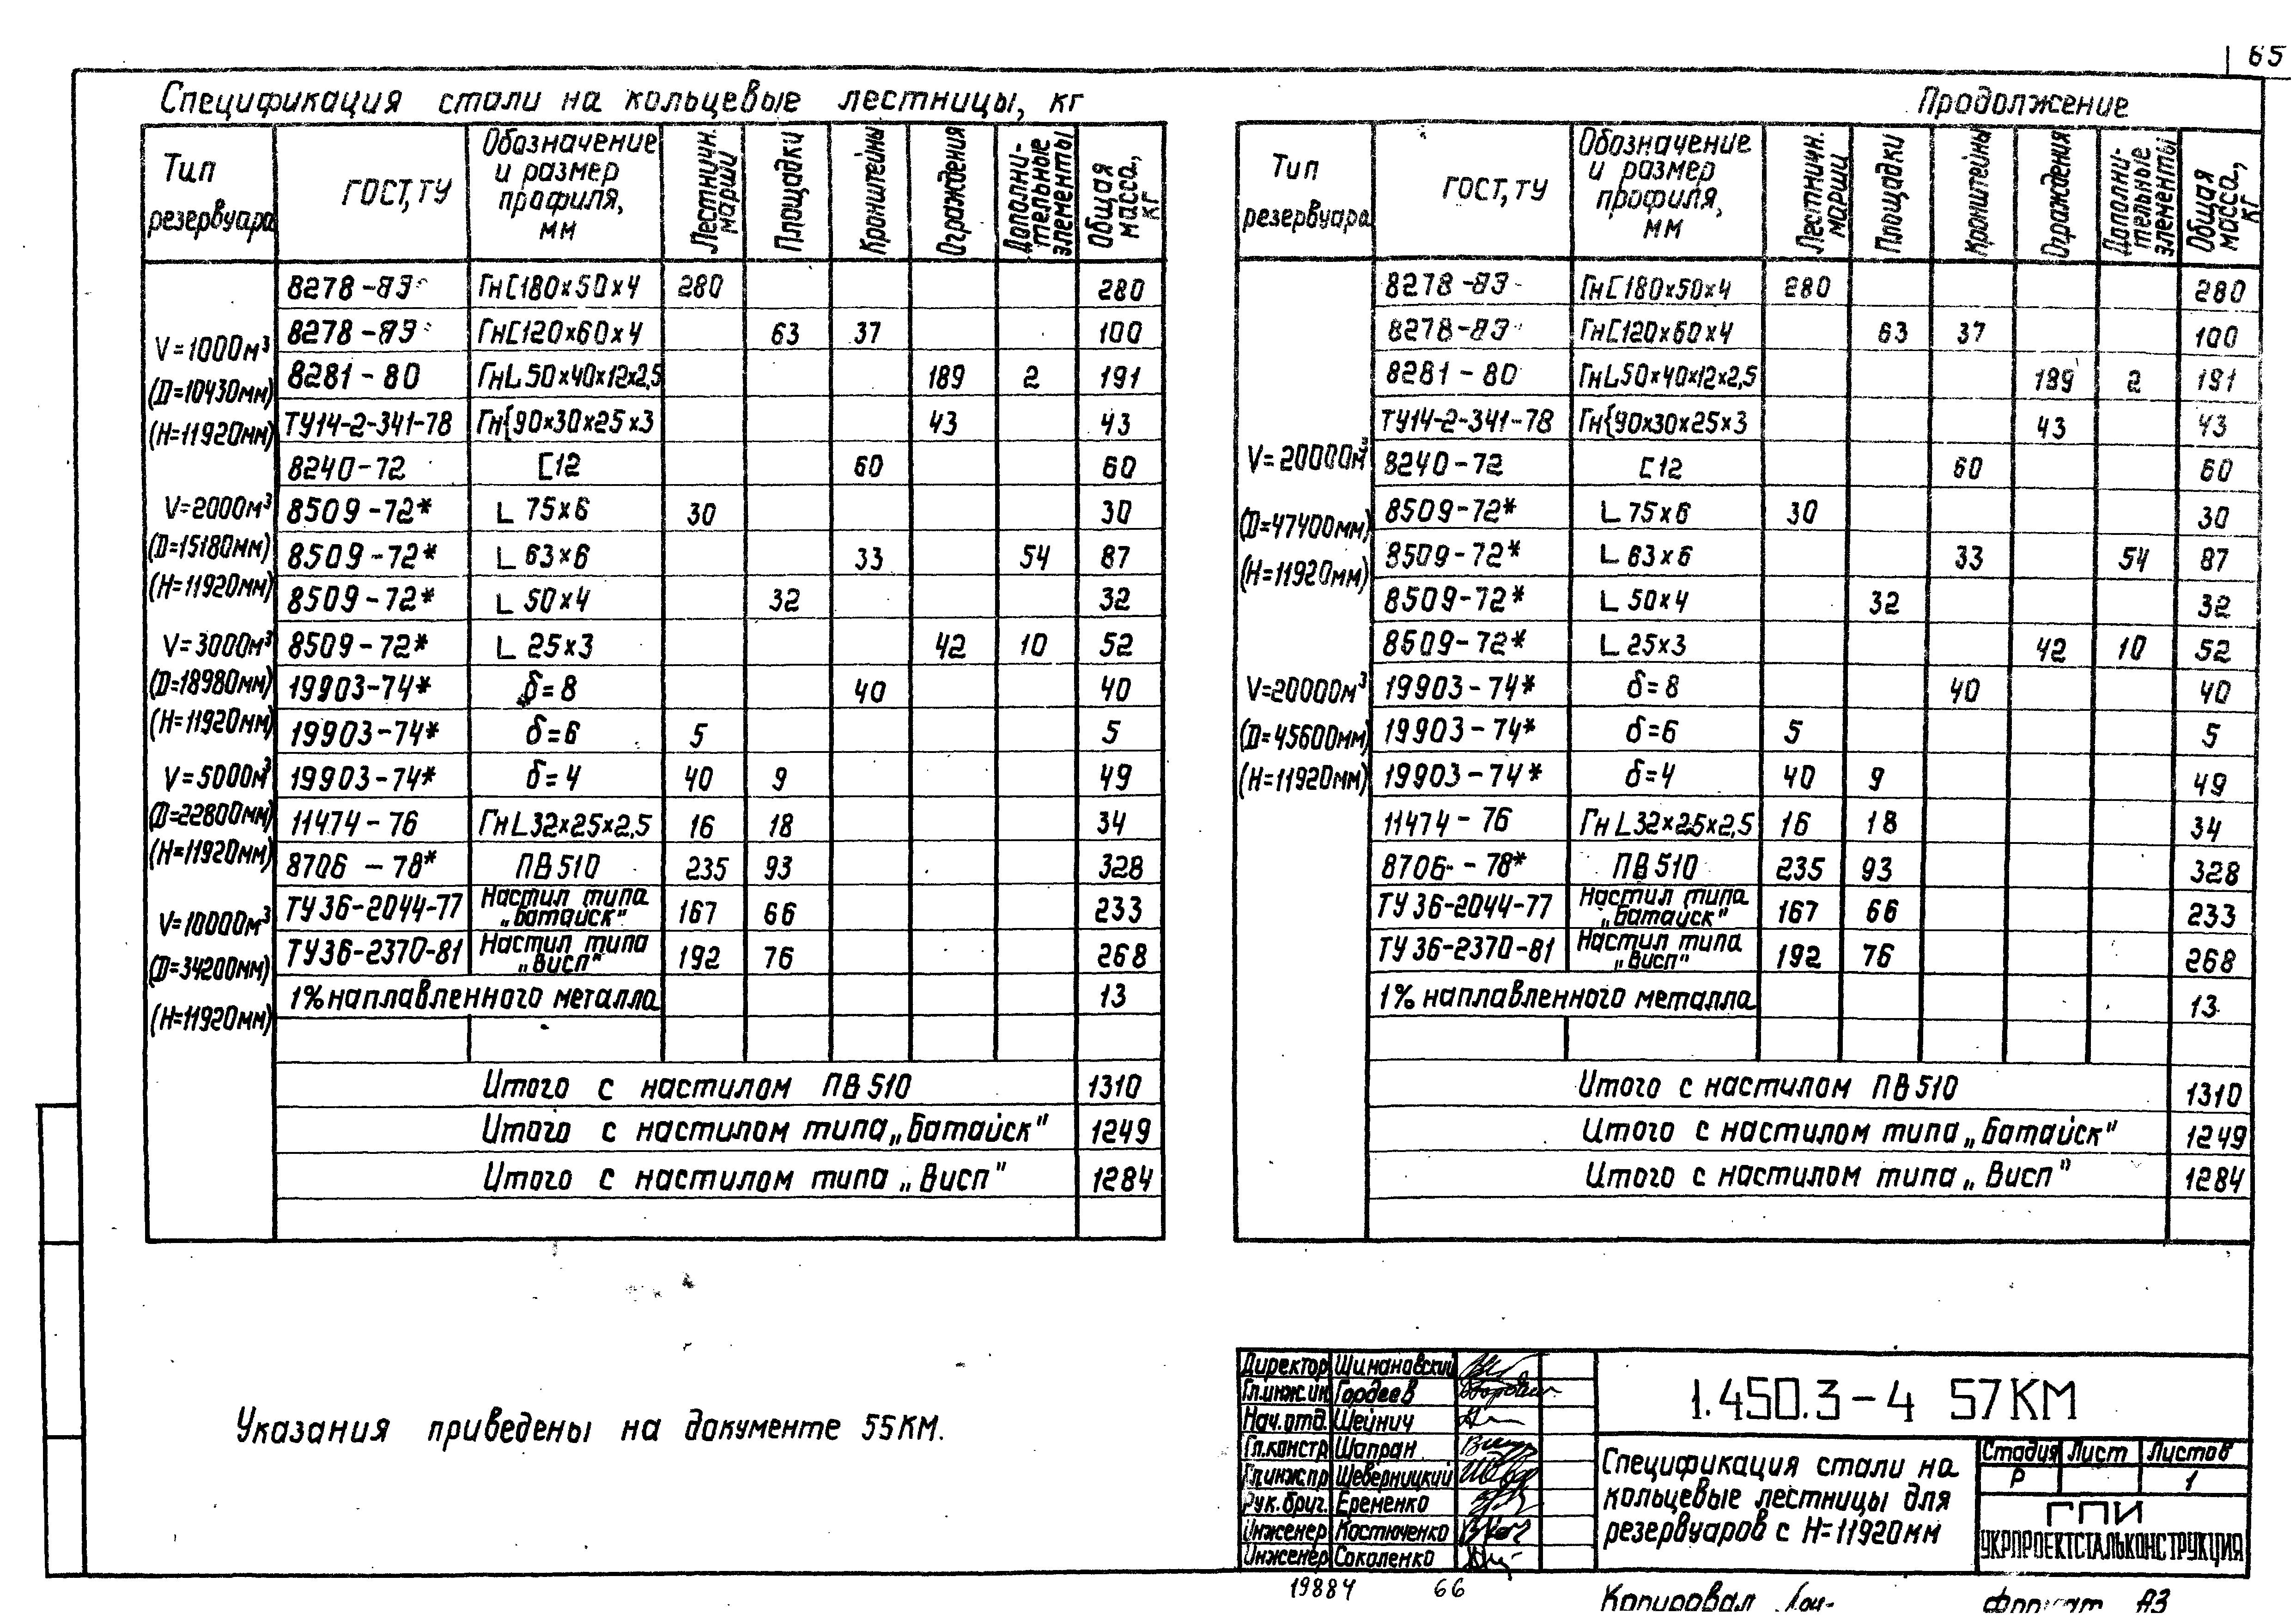 65
Спецификация стали на кольцевые лестницы, кг
Тип резервуара
ГОСТ, ТУ
Обозначение и размер профиля, мм
Лестничн. марши
Площадки
Кронштейны
Ограждения
Дополнительные элементы
Общая масса, кг
V=1000м³
(D=10430мм)
(H=11920мм)
V=2000м³
(D=15180мм)
(H=11920мм)
V=3000м³
(D=18980мм)
(H=11920мм)
V=5000м³
(D=22800мм)
(H=11920мм)
V=10000м³
(D=34200мм)
(H=11920мм)
8278-83 Гн[180×50×4 280 280
8278-83 Гн[120×60×4 63 37 100
8281-80 ГнL50×40×12×2,5 189 2 191
ТУ14-2-341-78 Гн{90×30×25×3 43 43
8240-72 [12 60 60
8509-72* L 75×6 30 30
8509-72* L 63×6 33 54 87
8509-72* L 50×4 32 32
8509-72* L 25×3 42 10 52
19903-74* δ=8 40 40
19903-74* δ=6 5 5
19903-74* δ=4 40 9 49
11474-76 ГнL32×25×2,5 16 18 34
8706-78* ПВ510 235 93 328
ТУ36-2044-77 Настил типа „Батайск" 167 66 233
ТУ36-2370-81 Настил типа „Висп" 192 76 268
1% наплавленного металла 13
Итого с настилом ПВ510 1310
Итого с настилом типа „Батайск" 1249
Итого с настилом типа „Висп" 1284
Продолжение
Тип резервуара
ГОСТ, ТУ
Обозначение и размер профиля, мм
Лестничн. марши
Площадки
Кронштейны
Ограждения
Дополнительные элементы
Общая масса, кг
V=20000м³
(D=47400мм)
(H=11920мм)
V=20000м³
(D=45600мм)
(H=11920мм)
8278-83 Гн[180×50×4 280 280
8278-83 Гн[120×60×4 63 37 100
8281-80 ГнL50×40×12×2,5 189 2 191
ТУ14-2-341-78 Гн{90×30×25×3 43 43
8240-72 [12 60 60
8509-72* L 75×6 30 30
8509-72* L 63×6 33 54 87
8509-72* L 50×4 32 32
8509-72* L 25×3 42 10 52
19903-74* δ=8 40 40
19903-74* δ=6 5 5
19903-74* δ=4 40 9 49
11474-76 ГнL32×25×2,5 16 18 34
8706-78* ПВ510 235 93 328
ТУ36-2044-77 Настил типа „Батайск" 167 66 233
ТУ36-2370-81 Настил типа „Висп" 192 76 268
1% наплавленного металла 13
Итого с настилом ПВ510 1310
Итого с настилом типа „Батайск" 1249
Итого с настилом типа „Висп" 1284
Указания приведены на документе 55КМ.
Директор Шимановский
Гл.инж.ин Гордеев
Нач.отд. Шейнич
Гл.констр Шапран
Гл.инж.пр Шеверницкий
Рук.бриг. Еременко
Инженер Костюченко
Инженер Соколенко
1.450.3-4 57КМ
Спецификация стали на
кольцевые лестницы для
резервуаров с H=11920мм
Стадия Лист Листов
Р 1
ГПИ
УКРПРОЕКТСТАЛЬКОНСТРУКЦИЯ
19884 66
Копировал
Формат А3